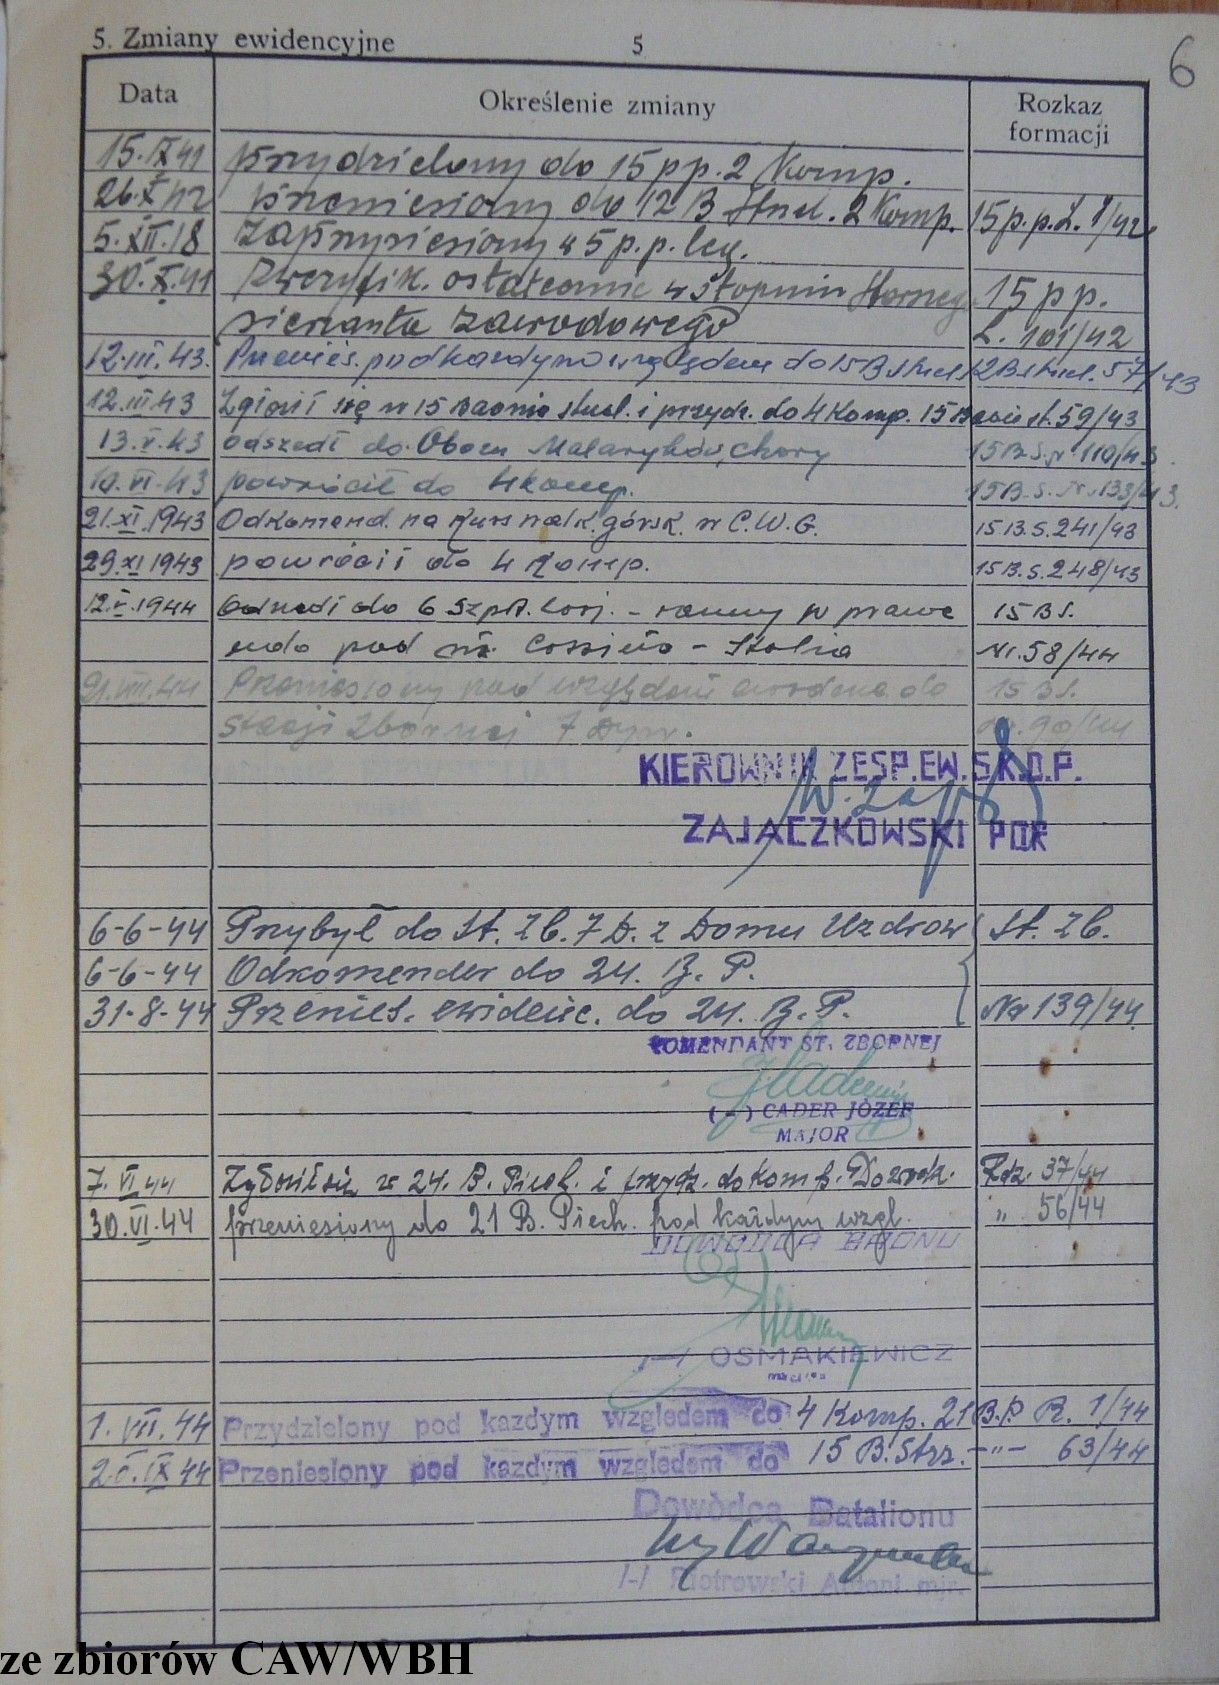 5. Zmiany ewidencyjne 5 6
Data Określenie zmiany Rozkaz formacji
15.IX 41 przydzielony do 15 pp. 2 Komp.
26.X 42 przeniesiony do 12 B Strzel. 2 Komp. 15 p.p. L. 1/42
5.XII.18 Zaprzysiężony w 5 p.p. leg.
30.X.41 Zweryfik. ostatecznie w stopniu Starszego 15 pp.
sierżanta zawodowego L. 101/42
12.III.43. Przenies. pod każdym względem do 15 B strzel. 12 B strzel. 57/43
12.III.43 Zgłosił się w 15 Baonie strzel. i przydz. do 4 Komp. 15 Baonie st. 59/43
13.V.43 odszedł do Obozu Malaryków, chory 15 B.S. nr 110/43.
10.VI.43 powrócił do 4 komp. 15 B.S. Nr. 133/43.
21.XI.1943 Odkomend. na Kurs walk. górsk. w C.W.G. 15 B.S. 241/43
29.XI 1943 powrócił do 4 komp. 15 B.S. 248/43
12.V.1944 Odszedł do 6 Szpit. - ranny w prawe 15 B S.
udo pod m. Cassino - Italia Nr. 58/44
21.VIII.44 Przeniesiony pod względem do 15 B S.
Stacji Zbornej 7 Dyw. nr. 90/44
KIEROWNIK ZESP. EW. S.K.D.P.
ZAJACZKOWSKI POR
6-6-44 Przybył do St. Zb. 7 D. z Domu Uzdrow St. Zb.
6-6-44 Odkomender do 24. B. P.
31-8-44 Przenies. ewidenc. do 24. B. P. Nr 139/44.
KOMENDANT ST. ZBORNEJ
(-) CADER JÓZEF
MAJOR
7.VI 44 Zgłosił się w 24. B. Piech. i przydz. do Komp. Dowodz. Rdz. 37/44
30.VI.44 przeniesiony do 21 B. Piech. pod każdym wzgl. " 56/44
DOWODCA BAONU
/-/ OSMAKIEWICZ
1.VII.44 Przydzielony pod kazdym wzgledem do 4 Komp. 21 B.P. R. 1/44
26.IX 44 Przeniesiony pod kazdym wzgledem do 15 B. Strz. -"- 63/44
Dowódca Batalionu
/-/ Piotrowski Antoni mjr.
ze zbiorów CAW/WBH